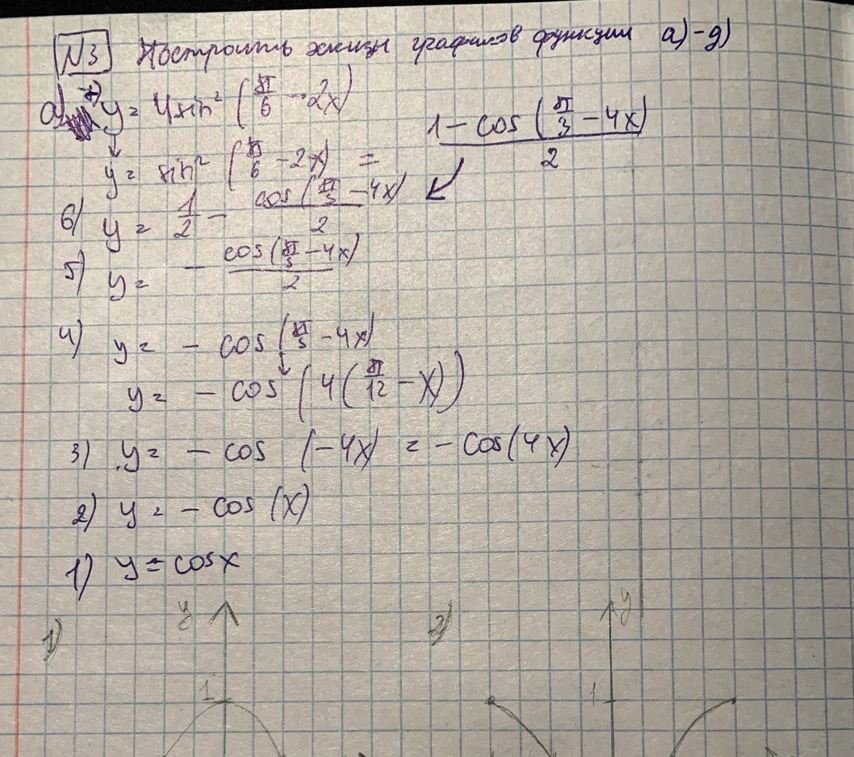 N3 Построить эскизы графиков функции а)-д)
а) 7) y = 4sin² (π/6 - 2x)
y = sin² (π/6 - 2x) = (1 - cos (π/3 - 4x))/2
6) y = 1/2 - cos(π/3 - 4x)/2
5) y = - cos(π/3 - 4x)/2
4) y = - cos (π/3 - 4x)
y = - cos (4(π/12 - x))
3) y = - cos (-4x) = - cos(4x)
2) y = - cos (x)
1) y = cosx
1) y 2) y
1 1